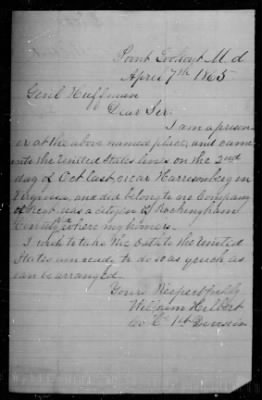 Point Lookout M.d
April 7th 1865
Genl Huffman
Dear Sir.
I am a prison
er at the above named place, and came
into the United States lines on the 2nd
day of Oct last, near Harrisonburg in
Virginia, and did belong to no Company
I was a citizen of Rockingham
County Va where my home is.
I wish to take the Oath to the United
States am ready to do so as quick as
can be arranged
Yours Respectfully
William
Co 1st Division